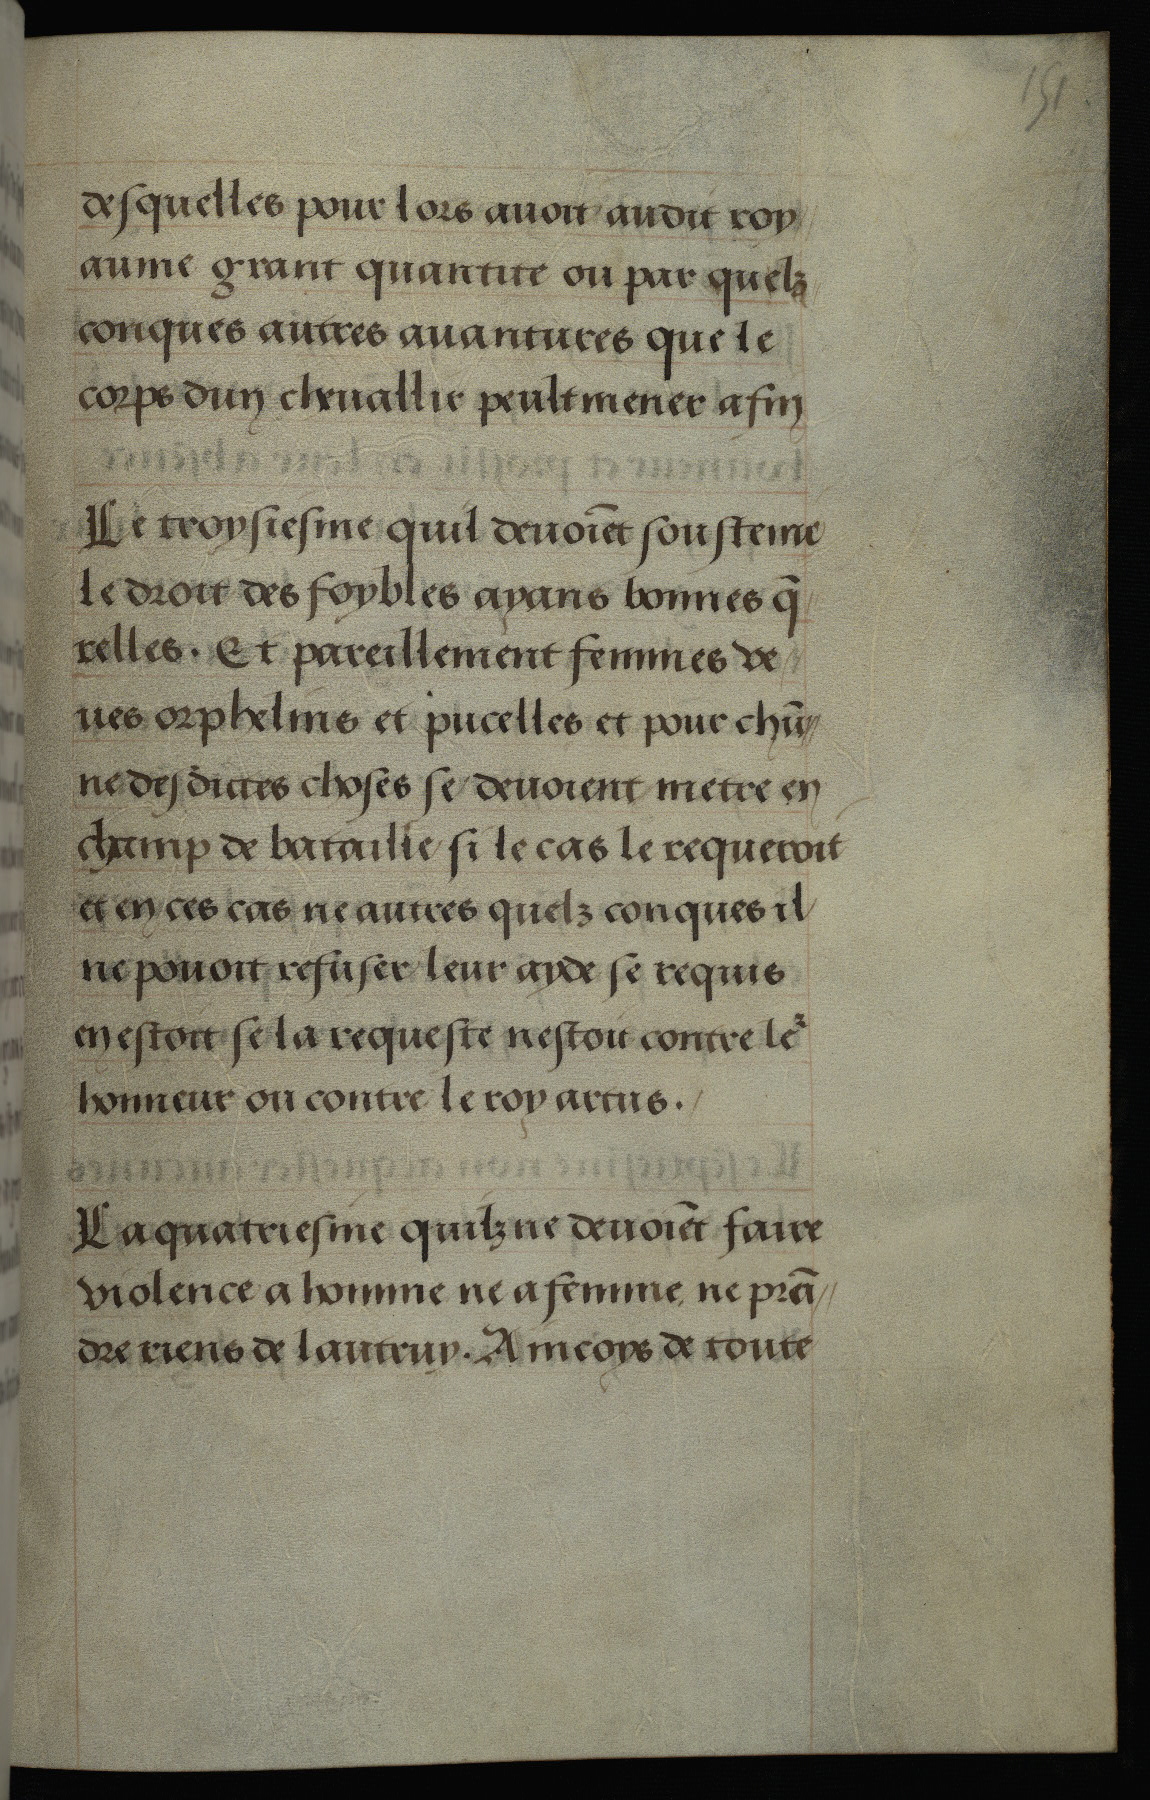 151
desquelles pour lors auoit audit roy//
aume grant quantite ou par quelz/
conques autres auantures que le
corps dun cheuallir peult mener a fin
Le troysiesme quil deuoiēt soustenir
le droit des foybles ayans bonnes q̄/
relles. Et pareillement femmes ve/
ues orphelins et pucelles et pour chū//
ne desdictes choses se deuoient metre en
champ de bataille si le cas le requeroit
et en ces cas ne autres quelz conques il
ne pouoit refuser leur ayde se requis
en estoit se la requeste nestoit contre leᷣ
honneur ou contre le roy artus./
La quatriesme quilz ne deuoiēt faire
violence a homme ne a femme ne prā//
dre riens de lautruy. Aincoys de toute